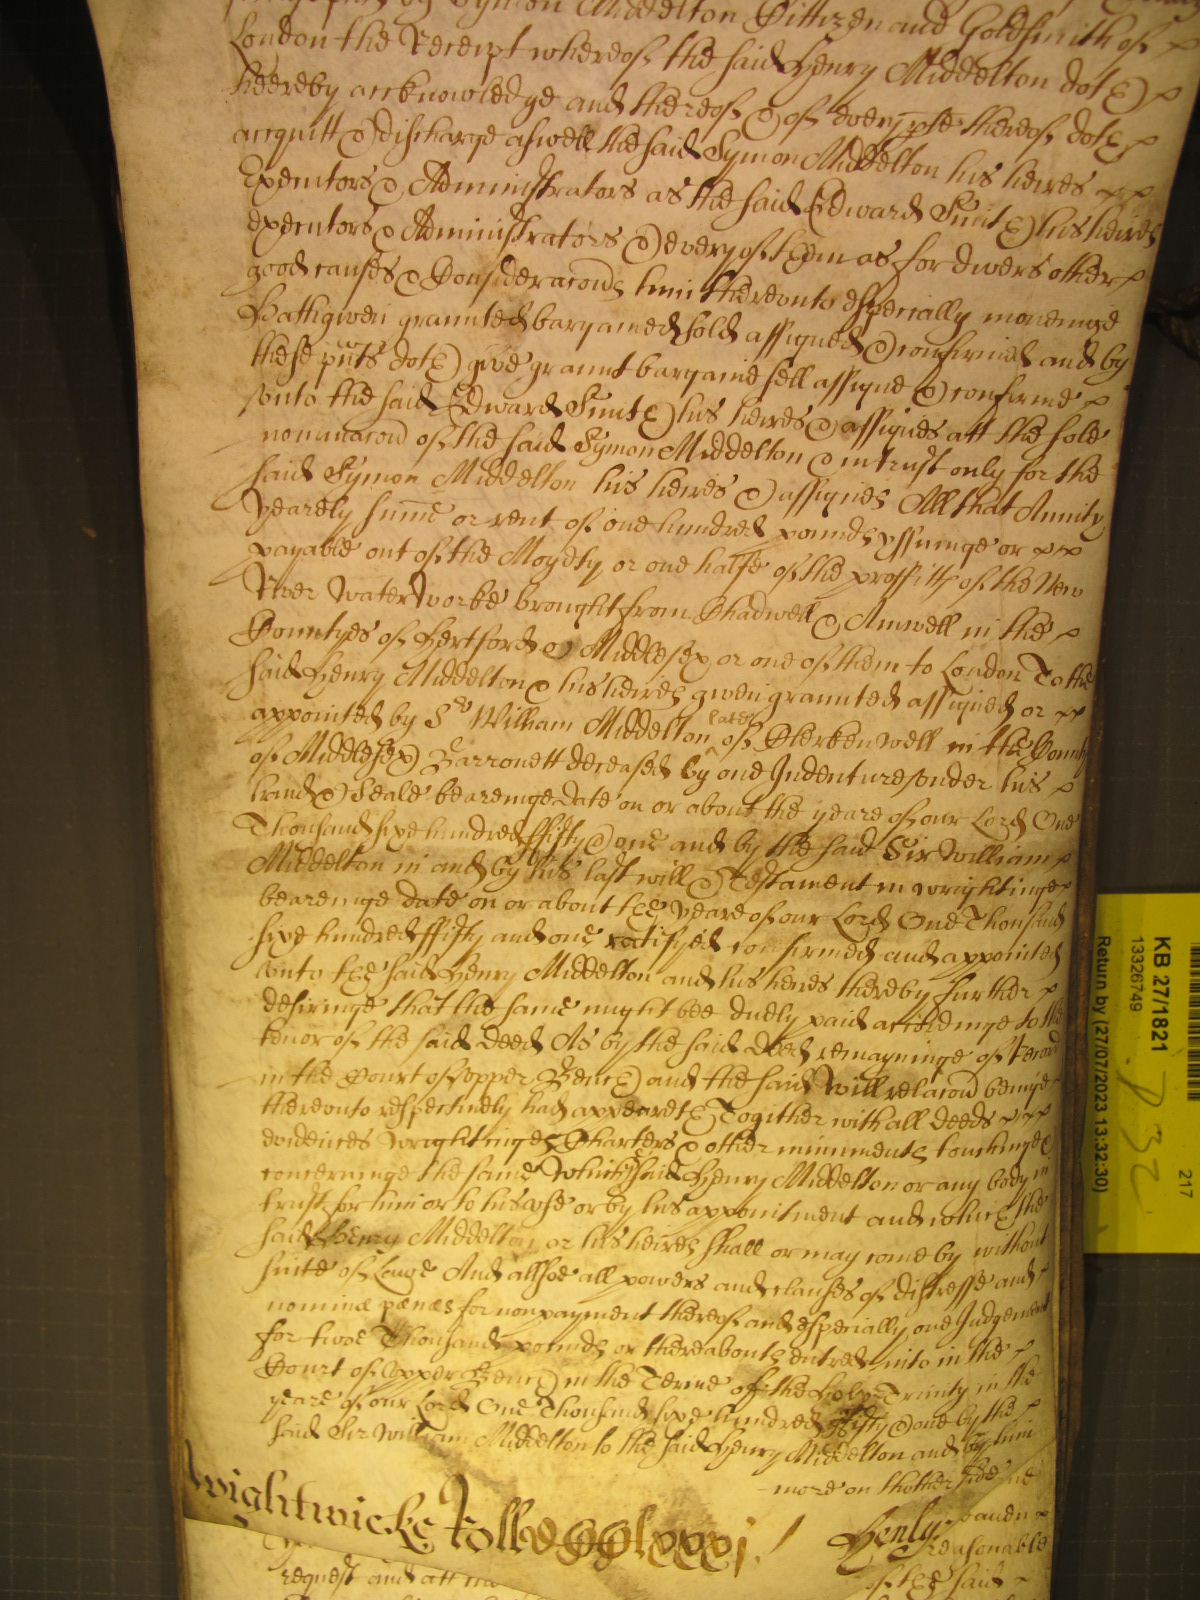 by Symon Middelton Cittizen and Goldsmith of
London the Receipt whereof the said Henry Middelton doth
heereby acknowledge and thereof & of every pte thereof doth
acquitt & discharge aswell the said Symon Middelton his heires
Executors & Administrators as the said Edward Smith his heires
executors & Administrators & every of them as for divers other
good causes & Consideracons him thereunto especially moveinge
Hath given graunted bargained sold assigned & confirmed and by
these pnts doth give graunt bargaine sell assigne & confirme
vnto the said Edward Smith his heires & assignes att the sole
nominacon of the said Symon Middelton & in trust only for the
said Symon Middelton his heires & assignes All that Annity
yearely summe or rent of one hundred pounds yssuinge or
payable out of the Moyety or one halfe of the proffitts of the New
River Water Worke brought from Chadwell & Amwell in the
Countyes of Hertford & Middlesex or one of them to London To the
said Henry Middelton & his heires given graunted assigned or
appointed by Sr William Middelton late of Clerkenwell in the County
of Middlesex Barronett deceased by one Indenture vnder his
hand & Seale beareinge date on or about the yeare of our Lord One
Thousand sixe hundred ffifty & one and by the said Sir William
Middelton in and by his last will & Testament in wrightinge
beareinge date on or about the yeare of our Lord One Thousand
sixe hundred ffifty and one ratifyed confirmed and appointed
vnto the said Henry Middelton and his heires thereby further
desiringe that the same might bee duely paid accordinge to the
tenor of the said Deed As by the said Deed remayninge of Record
in the Court of vpper Bench and the said Will relacon beinge
therevnto respectively had appeareth Togither with all deeds
evidences Wrightinges Charters & other miniments touchinge &
concerninge the same Which the said Henry Middelton or any body in
trust for him or to his vse or by his appointment and which the
said Henry Middelton or his heires shall or may come by without
suite of Lawe And allsoe all powers and clauses of distresse and
nominæ pænæs for nonpayment thereof and especially one Judgement
for twoe Thousand pounds or thereabouts entred into in the
Court of Vpper Bench in the Terme of the Holy Trinity in the
yeare of our Lord One Thousand sixe hundred ffifty & one by the
said Sir William Middelton to the said Henry Middelton and by him
more on thother side
Wightwicke Rolle
Henly
reasonable
request and att
of the said
KB 27/1821
13326749
Return by (27/07/2023 13:32:30)
217